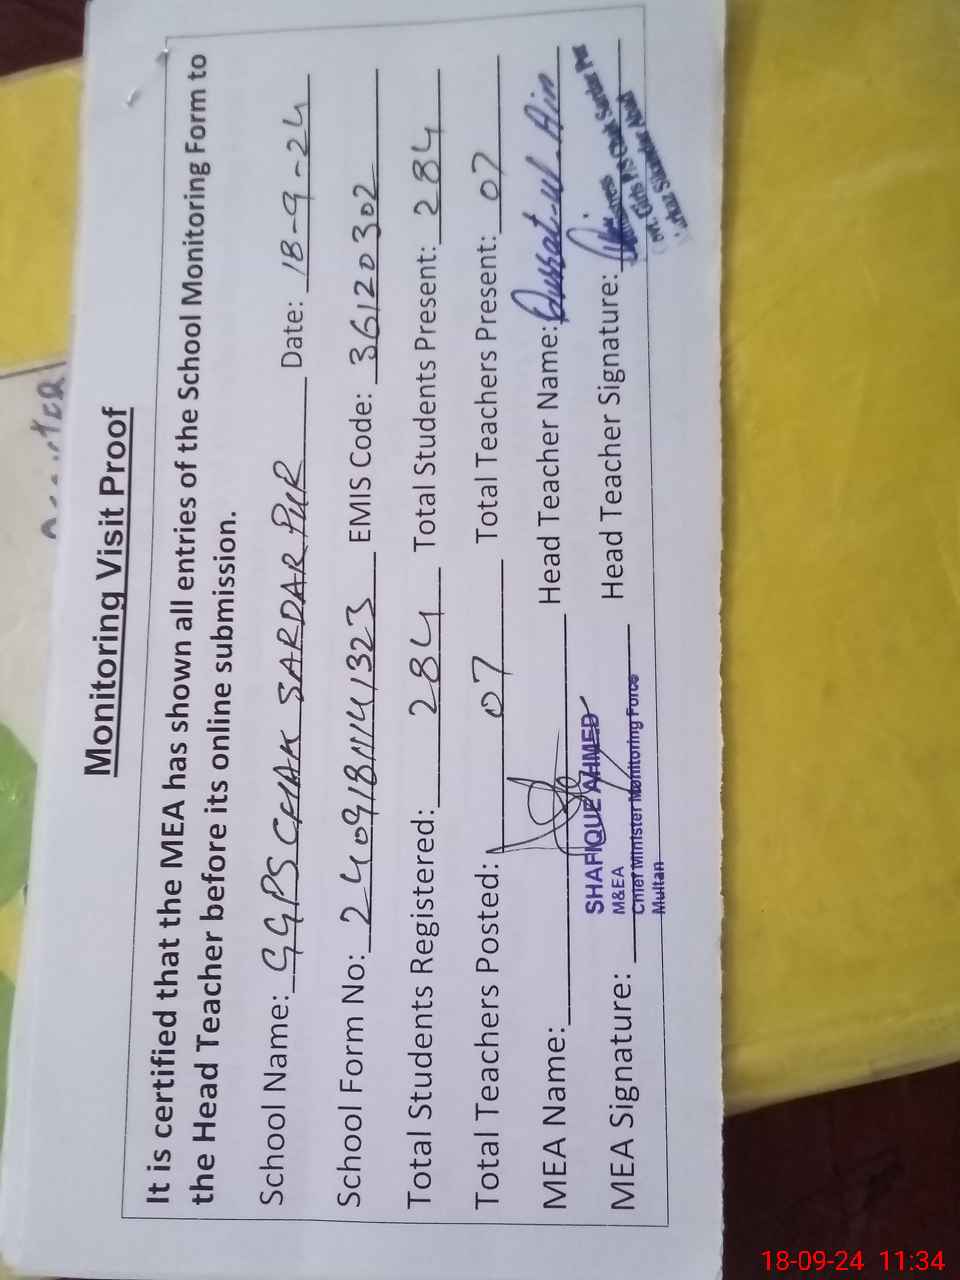 Monitoring Visit Proof
It is certified that the MEA has shown all entries of the School Monitoring Form to
the Head Teacher before its online submission.
School Name: GGPS CHAK SARDAR PUR Date: 18-9-24
School Form No: 240918111141323 EMIS Code: 36120302
Total Students Registered: 284 Total Students Present: 284
Total Teachers Posted: 07 Total Teachers Present: 07
MEA Name: Head Teacher Name: Qurrat-ul-Ain
SHAFIQUE AHMED
M&EA
Chief Minister Monitoring Force
Multan
MEA Signature: Head Teacher Signature:
Girls P/S Chak Sardar Pur
18-09-24 11:34